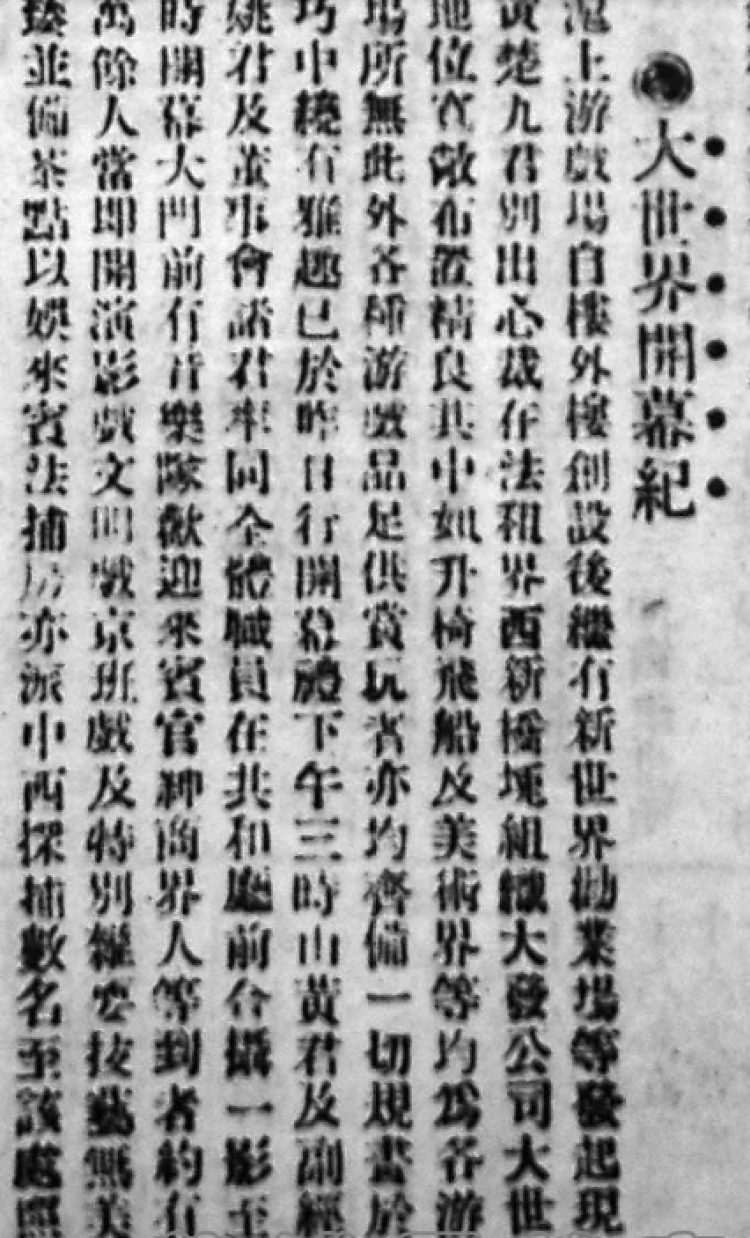 大世界開幕紀
滬上游戲場自樓外樓創設後繼有新世界勸業場等發起現
黃楚九君別出心裁在法租界西新橋堍組織大發公司大世
地位寬敞布置精良其中如升椅飛船及美術界等均爲各游
場所無此外各種游戲品足供賞玩者亦均齊備一切規畫於
巧中繞有雅趣已於昨日行開幕禮下午三時由黃君及副經
姚君及董事會諸君率同全體職員在共和廳前合攝一影至
時開幕大門前有音樂隊歡迎來賓官紳商界人等到者約有
萬餘人當即開演影戲文明戲京班戲及特別雜耍技藝無美
臻並備茶點以娛來賓法捕房亦派中西探捕數名至該處照